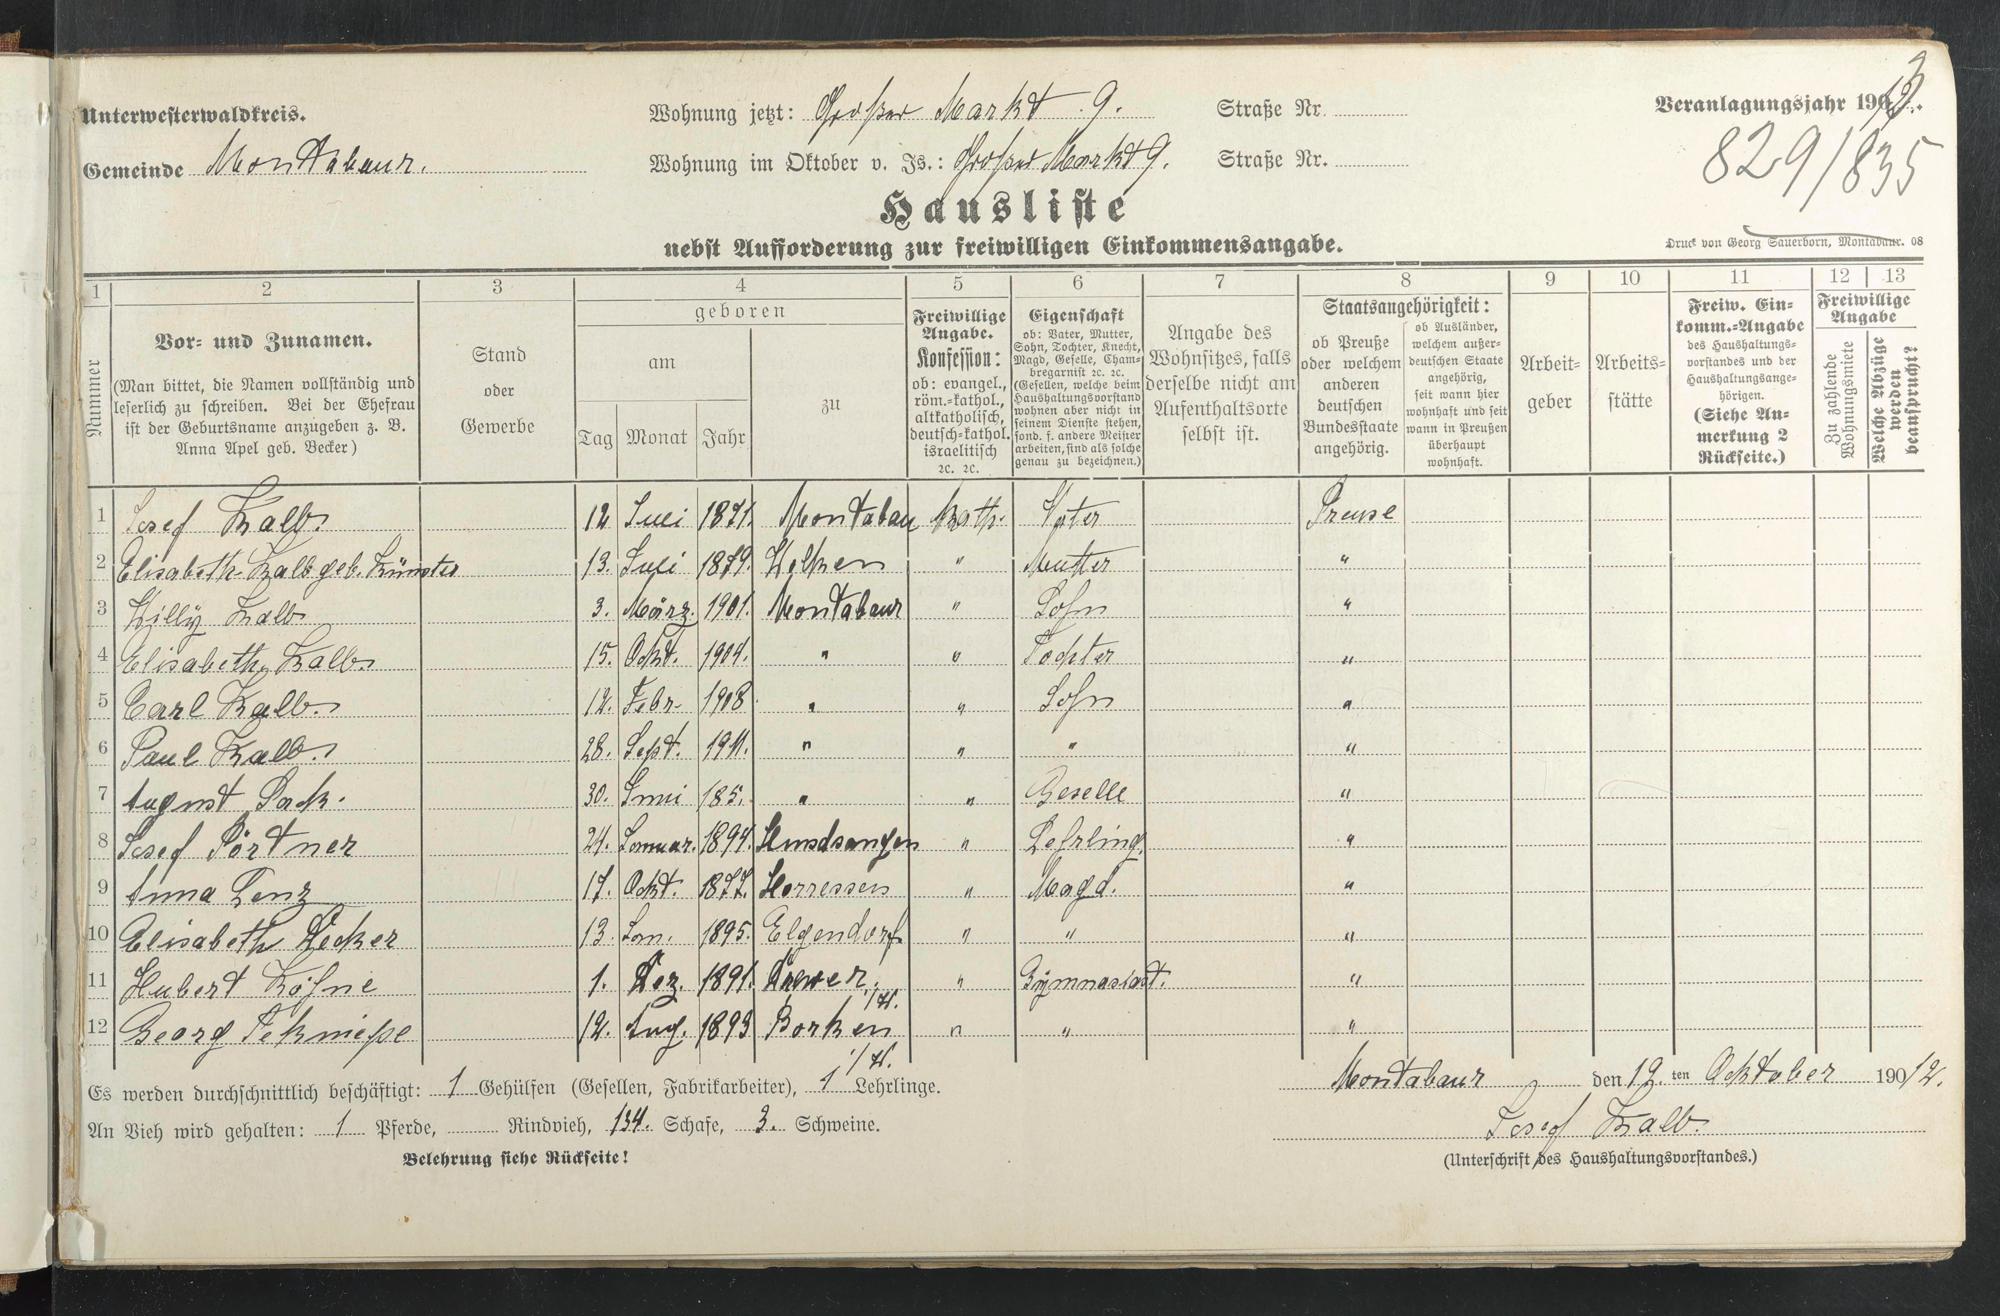 Unterwesterwaldkreis.
Gemeinde Montabaur.
Wohnung jetzt: Großer Markt 9. Straße Nr.
Wohnung im Oktober v. Js.: Großer Markt 9. Straße Nr.
Veranlagungsjahr 1913.
829/835
Hausliste
nebst Aufforderung zur freiwilligen Einkommensangabe.
Druck von Georg Sauerborn, Montabaur. 08
1 2 3 4 5 6 7 8 9 10 11 12 13
Nummer
Vor- und Zunamen.
(Man bittet, die Namen vollständig und
leserlich zu schreiben. Bei der Ehefrau
ist der Geburtsname anzugeben z. B.
Anna Apel geb. Becker)
Stand
oder
Gewerbe
geboren
am
Tag Monat Jahr
zu
Freiwillige
Angabe.
Konfession:
ob: evangel.,
röm.-kathol.,
altkatholisch,
deutsch-kathol.
israelitisch
2c. 2c.
Eigenschaft
ob: Vater, Mutter,
Sohn, Tochter, Knecht,
Magd, Geselle, Cham-
bregarnist 2c. 2c.
(Gesellen, welche beim
Haushaltungsvorstand
wohnen aber nicht in
seinem Dienste stehen,
sond. f. andere Meister
arbeiten, sind als solche
genau zu bezeichnen.)
Angabe des
Wohnsitzes, falls
derselbe nicht am
Aufenthaltsorte
selbst ist.
Staatsangehörigkeit:
ob Preuße
oder welchem
anderen
deutschen
Bundesstaate
angehörig.
ob Ausländer,
welchem außer-
deutschen Staate
angehörig,
seit wann hier
wohnhaft und seit
wann in Preußen
überhaupt
wohnhaft.
Arbeit-
geber
Arbeits-
stätte
Freiw. Ein-
komm.-Angabe
des Haushaltungs-
vorstandes und der
Haushaltungsange-
hörigen.
(Siehe An-
merkung 2
Rückseite.)
Freiwillige
Angabe
Zu zahlende
Wohnungsmiete
Welche Abzüge
werden
beansprucht?
1 Josef Kalb. 12 Juli 1871. Montabau Kath. Vater Preuse
2 Elisabeth Kalb geb. Künster 13. Juli 1879. " Mutter "
3 Willy Kalb 3. März. 1901. Montabaur " Sohn "
4 Elisabeth Kalb. 15. Okt. 1904. " " Tochter "
5 Carl Kalb. 12. Febr. 1908. " " Sohn "
6 Paul Kalb. 28. Sept. 1911. " " " "
7 August Sack. 30. Juni 185. " " Geselle "
8 Josef Pörtner 24. Januar. 1894. Hundsangen " Lehrling. "
9 Anna Lenz 17. Okt. 1877. Horressen " Magd. "
10 Elisabeth Decker 13. Jan. 1895. Elgendorf " " "
11 Hubert Köhne 1. Dez. 1891. Drewer, " Gymnasiast. "
i/W.
12 Georg 12. Aug. 1893 Borken " " "
i/W.
Es werden durchschnittlich beschäftigt: 1 Gehülfen (Gesellen, Fabrikarbeiter), 1 Lehrlinge.
An Vieh wird gehalten: 1 Pferde, Rindvieh, 134. Schafe, 3. Schweine.
Belehrung siehe Rückseite!
Montabaur den 19. ten Oktober 19012.
Josef Kalb.
(Unterschrift des Haushaltungsvorstandes.)